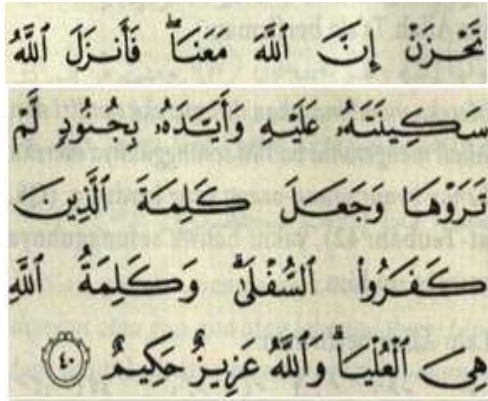 تَحْزَنْ إِنَّ ٱللَّهَ مَعَنَا ۖ فَأَنزَلَ ٱللَّهُ
سَكِينَتَهُۥ عَلَيْهِ وَأَيَّدَهُۥ بِجُنُودٍ لَّمْ
تَرَوْهَا وَجَعَلَ كَلِمَةَ ٱلَّذِينَ
كَفَرُوا۟ ٱلسُّفْلَىٰ ۗ وَكَلِمَةُ ٱللَّهِ
هِىَ ٱلْعُلْيَا ۗ وَٱللَّهُ عَزِيزٌ حَكِيمٌ ٤٠